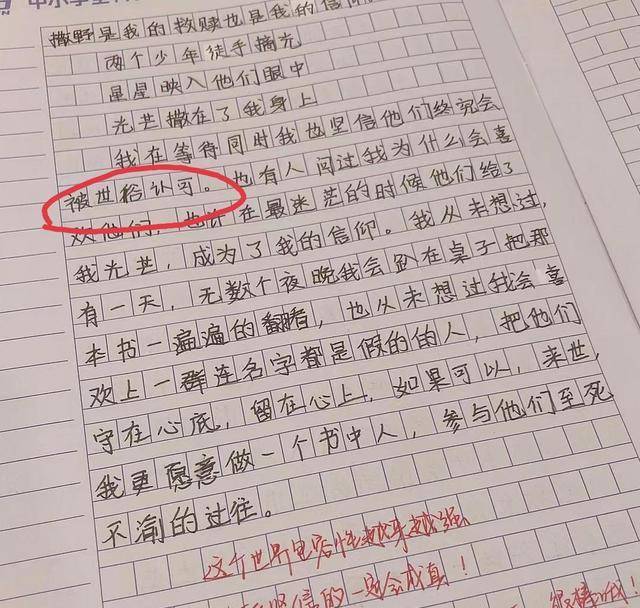 中小学
撒野是我的救赎也是我的信仰。
两个少年徒手摘光
星星映入他们眼中
光芒撒在了我身上
我在等待同时我也坚信他们终究会
被世俗认可。也有人问过我为什么会喜
欢他们，也许在最迷茫的时候他们给了
我光芒，成为了我的信仰。我从未想过，
有一天，无数个夜晚我会趴在桌子把那
本书一遍遍的翻看，也从未想过我会喜
欢上一群连名字都是假的的人，把他们
守在心底，留在心上，如果可以，来世，
我更愿意做一个书中人，参与他们至死
不渝的过往。
这个世界包容性越来越强
坚信的一定会成真！